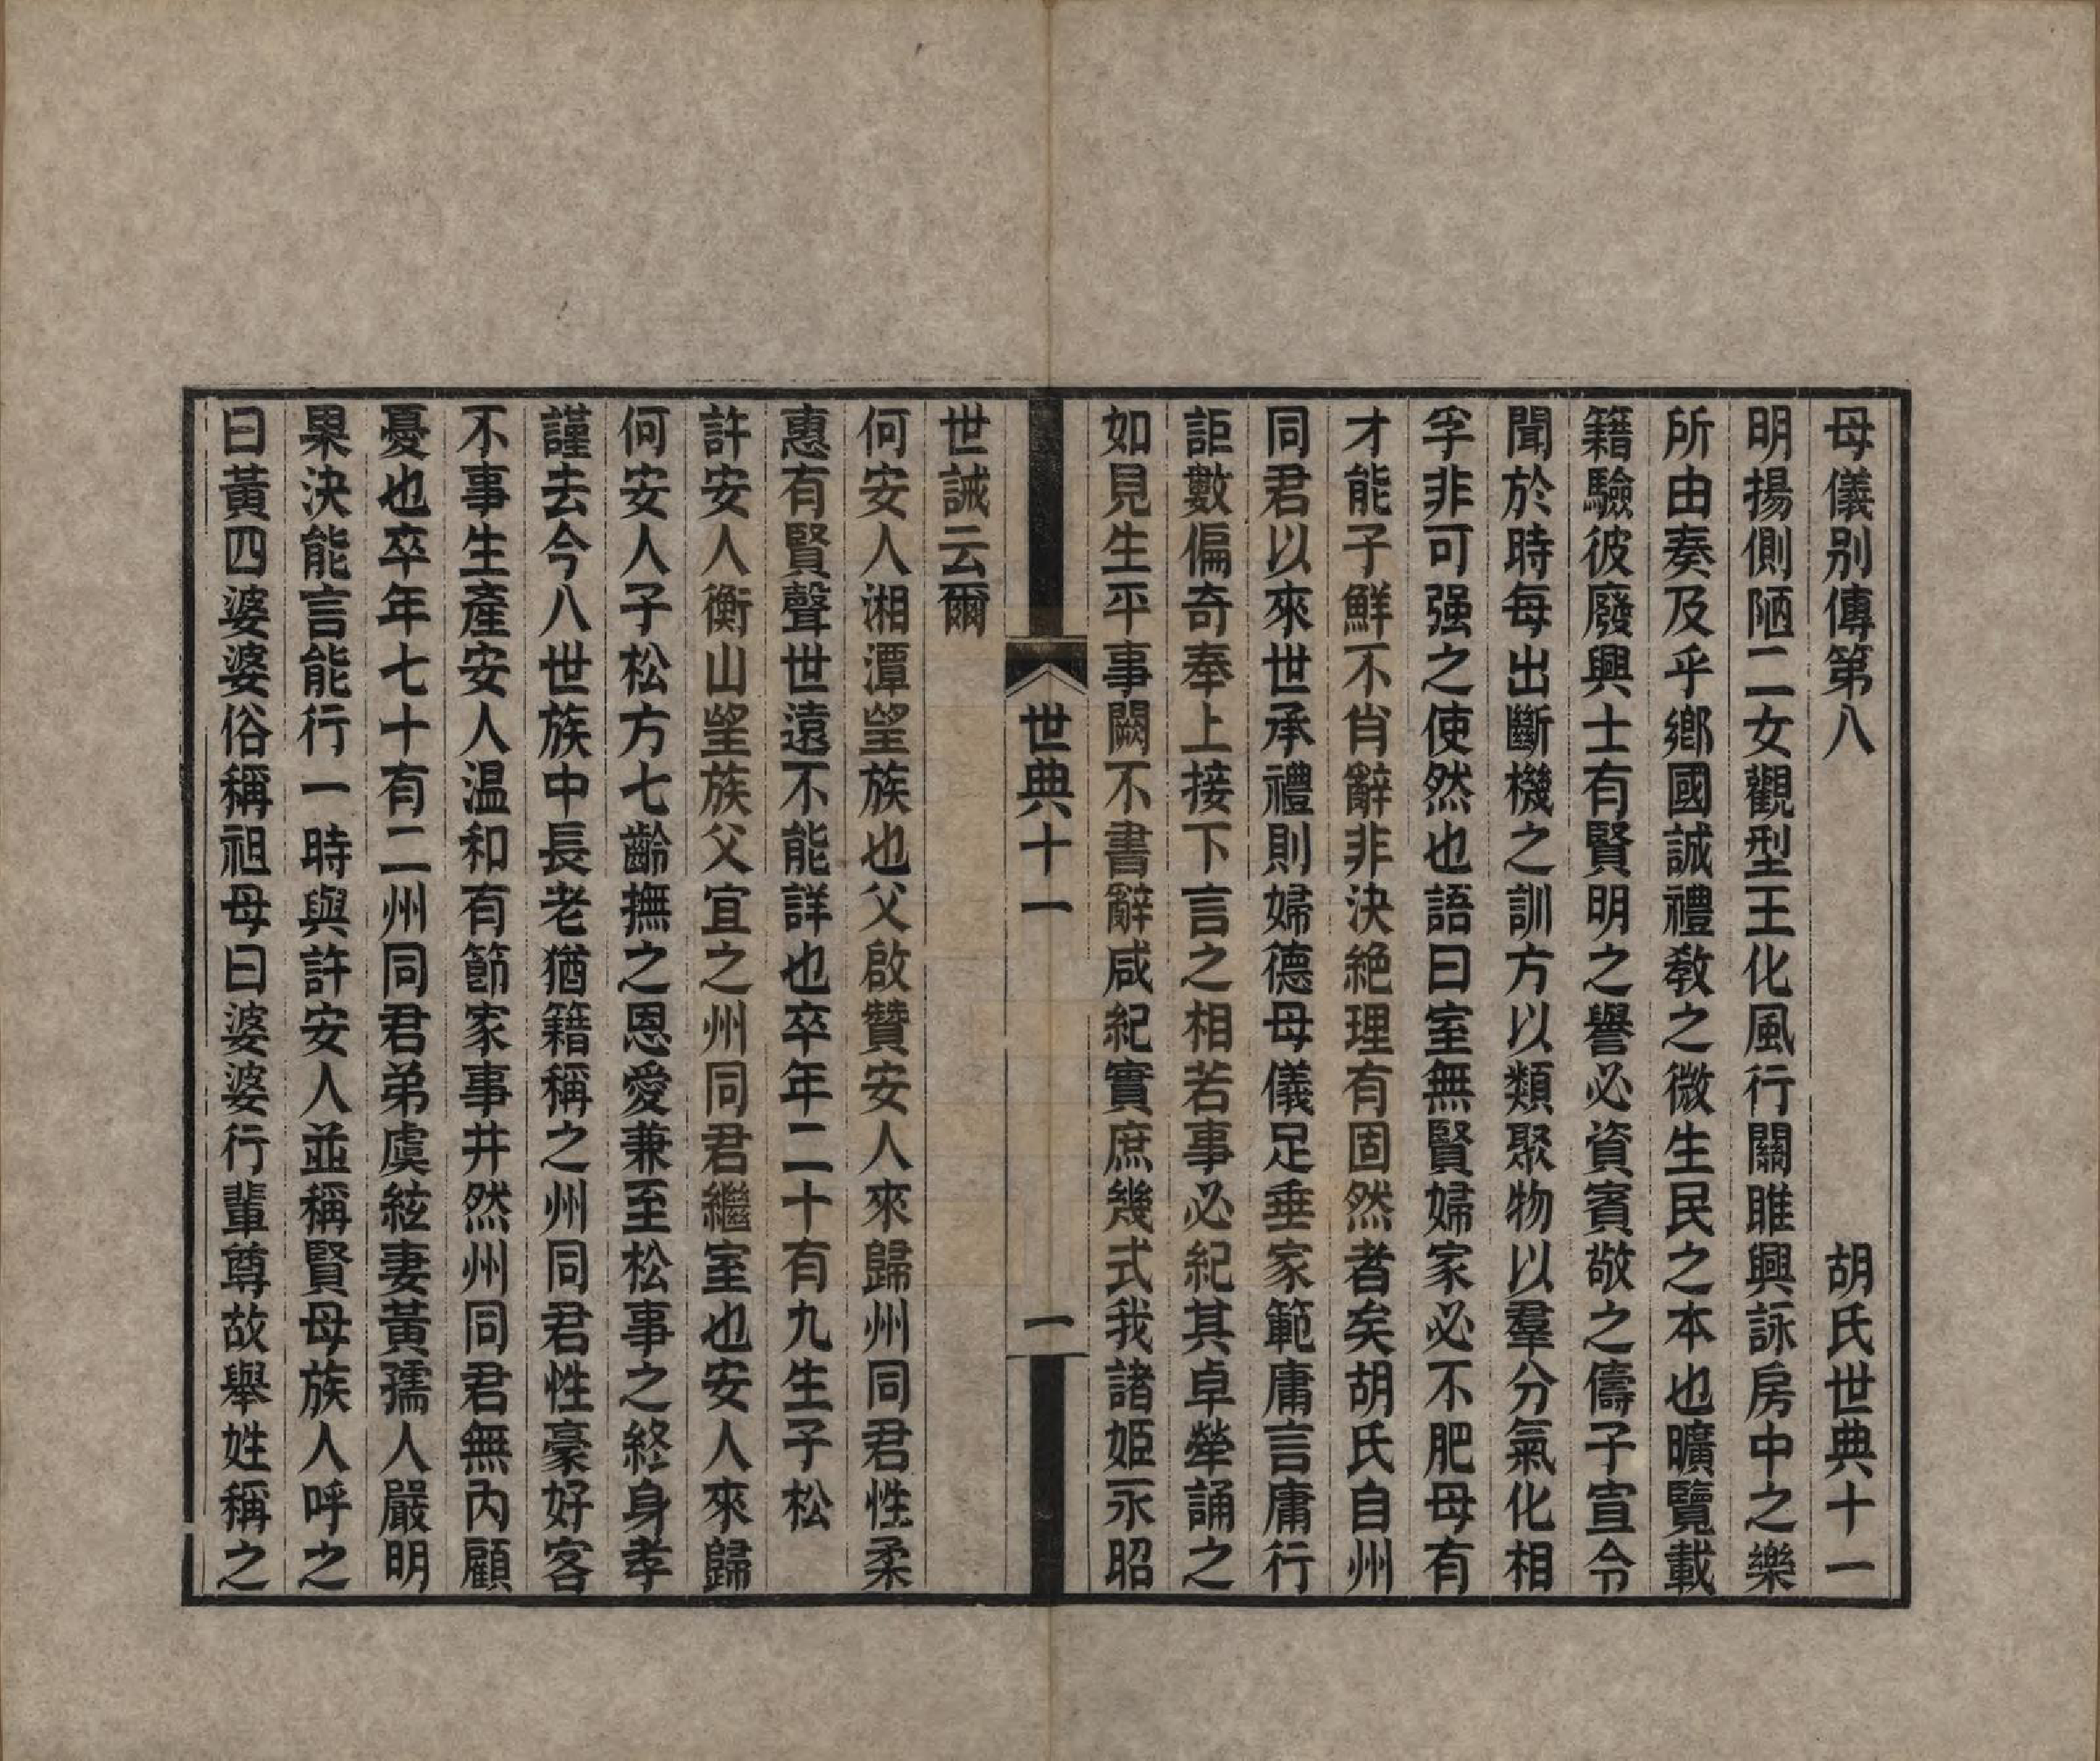 母儀別傳第八　胡氏世典十一
明揚側陋二女觀型王化風行關雎興詠房中之樂
所由奏及乎鄉國誠禮敎之微生民之本也曠覽載
籍驗彼廢興士有賢明之譽必資賓敬之儔子宣令
聞於時每出斷機之訓方以類聚物以羣分氣化相
孚非可强之使然也語曰室無賢婦家必不肥母有
才能子鮮不肖辭非決絶理有固然者矣胡氏自州
同君以來世承禮則婦德母儀足垂家範庸言庸行
詎數偏奇奉上接下言之相若事必紀其卓犖誦之
如見生平事闕不書辭咸紀實庶幾式我諸姬永昭
世典十一
一
世誡云爾
何安人湘潭望族也父啟贊安人來歸州同君性柔
惠有賢聲世遠不能詳也卒年二十有九生子松
許安人衡山望族父宜之州同君繼室也安人來歸
何安人子松方七齡撫之恩愛兼至松事之終身孝
謹去今八世族中長老猶籍稱之州同君性豪好客
不事生產安人温和有節家事井然州同君無內顧
憂也卒年七十有二州同君弟虞絃妻黃孺人嚴明
果決能言能行一時與許安人並稱賢母族人呼之
曰黃四婆婆俗稱祖母曰婆婆行輩尊故舉姓稱之